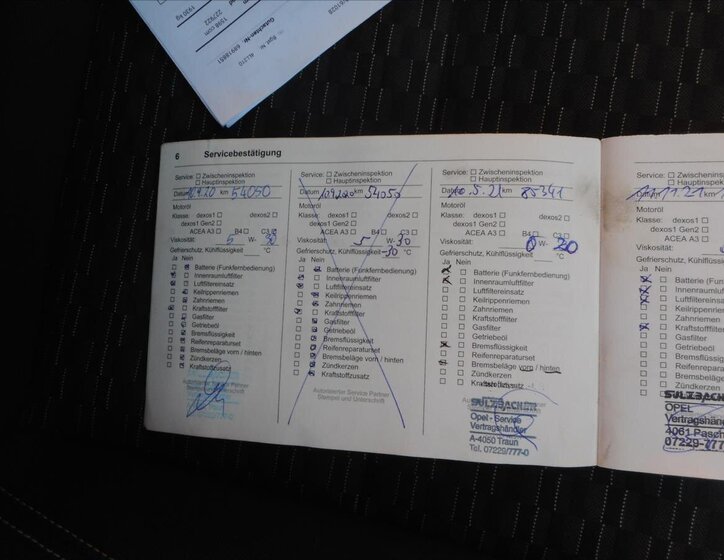 1930 kg
227/022
1598 ccm
Gutachten-Nr.: 68918851
Bgst. Nr. 4L210
6 Servicebestätigung
Service: ☐ Zwischeninspektion
☐ Hauptinspektion
Datum 10.9.20 km 54050
Motoröl
Klasse: dexos1 ☐ dexos2 ☐
dexos1 Gen2 ☐
ACEA A3 ☐ B4 ☐ C3
Viskosität: 5 W- 30
Gefrierschutz, Kühlflüssigkeit: °C
Ja Nein
Batterie (Funkfernbedienung)
Innenraumluftfilter
Luftfiltereinsatz
Keilrippenriemen
Zahnriemen
Kraftstofffilter
Gasfilter
Getriebeöl
Bremsflüssigkeit
Reifenreparaturset
Bremsbeläge vorn / hinten
Zündkerzen
Kraftstoffzusatz
Service: ☐ Zwischeninspektion
☐ Hauptinspektion
Datum 10.9.2020 km 54050
Motoröl
Klasse: dexos1 ☐ dexos2 ☐
dexos1 Gen2 ☐
ACEA A3 ☐ B4 ☐ C3
Viskosität: 5 W- 30
Gefrierschutz, Kühlflüssigkeit: -30 °C
Ja Nein
Batterie (Funkfernbedienung)
Innenraumluftfilter
Luftfiltereinsatz
Keilrippenriemen
Zahnriemen
Kraftstofffilter
Gasfilter
Getriebeöl
Bremsflüssigkeit
Reifenreparaturset
Bremsbeläge vorn / hinten
Zündkerzen
Kraftstoffzusatz
Autorisierter Service Partner
Stempel und Unterschrift
Service: ☐ Zwischeninspektion
☐ Hauptinspektion
Datum .5.21 km 85341
Motoröl
Klasse: dexos1 ☐ dexos2 ☐
dexos1 Gen2 ☐
ACEA A3 ☐ B4 ☐ C3 ☐
Viskosität: 0 W- 20
Gefrierschutz, Kühlflüssigkeit: °C
Ja Nein
Batterie (Funkfernbedienung)
Innenraumluftfilter
Luftfiltereinsatz
Keilrippenriemen
Zahnriemen
Kraftstofffilter
Gasfilter
Getriebeöl
Bremsflüssigkeit
Reifenreparaturset
Bremsbeläge vorn / hinten
Zündkerzen
Kraftstoffzusatz
SULZBACHER
Opel - Service
Vertragshändler
A-4050 Traun
Tel. 07229/777-0
Service: ☐ Zwischeninspektion
☐ Hauptinspektion
Datum 11.21 km
Motoröl
Klasse: dexos1
dexos1 Gen2
ACEA A3
Viskosität:
Gefrierschutz, Kühlflüssig
Ja Nein
Batterie (Funkfe
Innenraumluftfi
Luftfiltereinsatz
Keilrippenriemen
Zahnriemen
Kraftstofffilter
Gasfilter
Getriebeöl
Bremsflüssigkeit
Reifenreparaturset
Bremsbeläge vorn
Zündkerzen
Kraftstoffzusatz
SULZBACHE
OPEL
Vertragshänd
4061 Pasch
07229-77